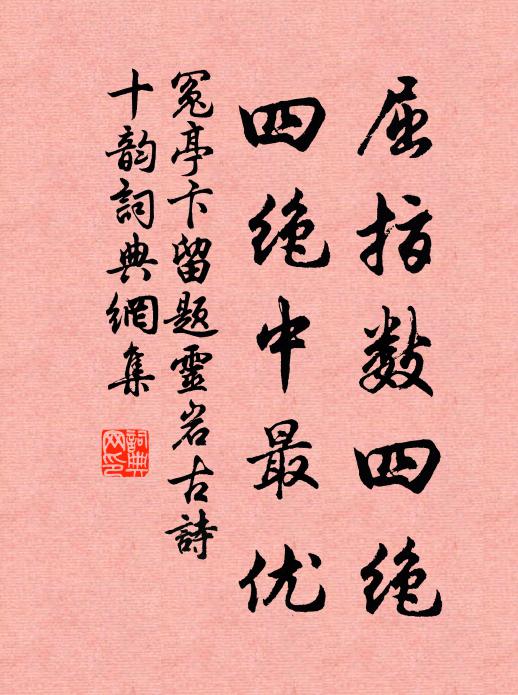 屈指数四绝
四绝中最优
冤亭卞留题靈岩古詩
十韵詞典網集
詞典網印